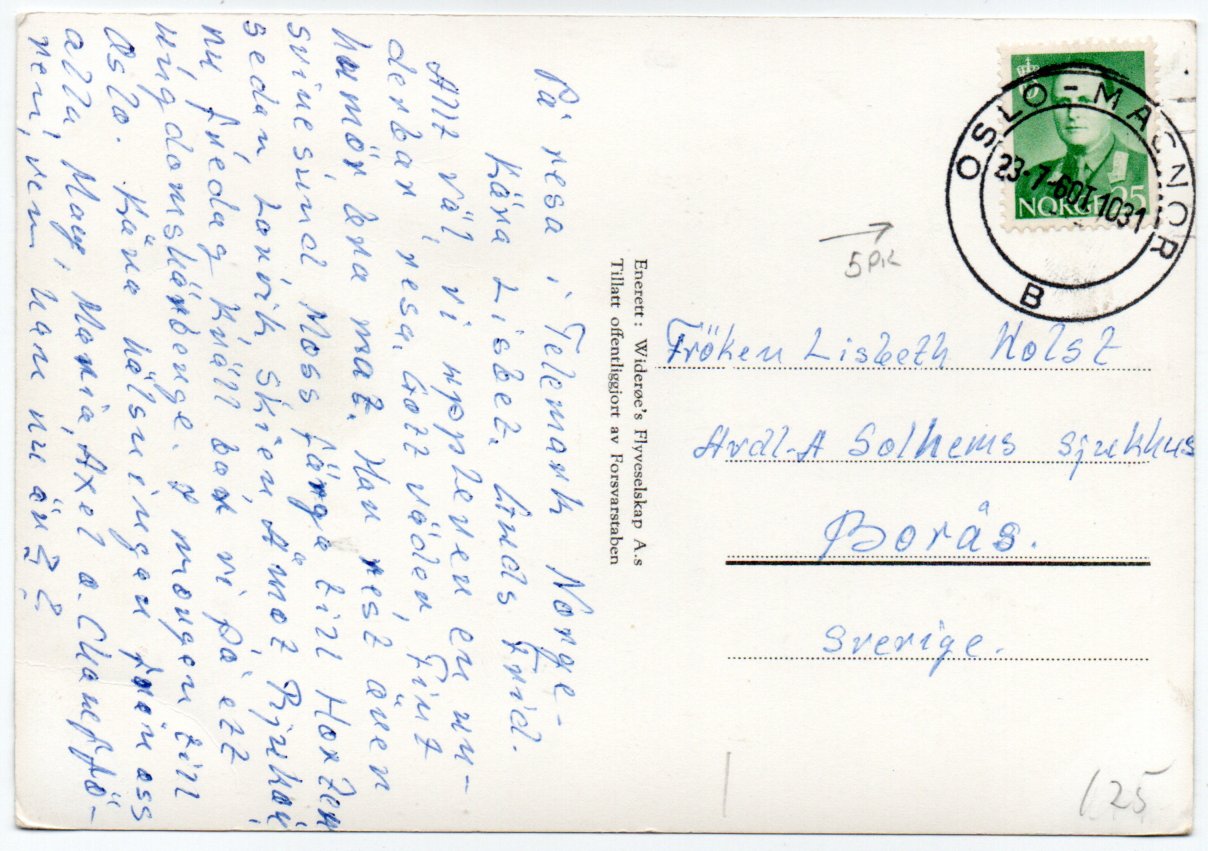 På resa i Telemark Norge-
Kära Lisbet. Guds Frid.
Allt väl, vi upplever en un-
derbar resa. Gott väder, Fint
humör bra mat. Har rest över
svinesund Moss färga till Horten
sedan Larvik Skien Åmot Rjukan,
nu fredag kväll bor vi på ett
ungdomshärberge. I morgon till
Oslo. Kära hälsningar från oss
alla, May, Maria, Axel o. Chauffö-
ren, vem kan nu än??
Enerett: Widerøe's Flyveselskap A.s
Tillatt offentliggjort av Forsvarstaben
OSLO-MAGNOR
23-7-60T.1031
B
NORGE 25
5 PK
Fröken Lisbeth Holst
Avdl.A Solhems Sjukhus
Borås.
Sverige.
125